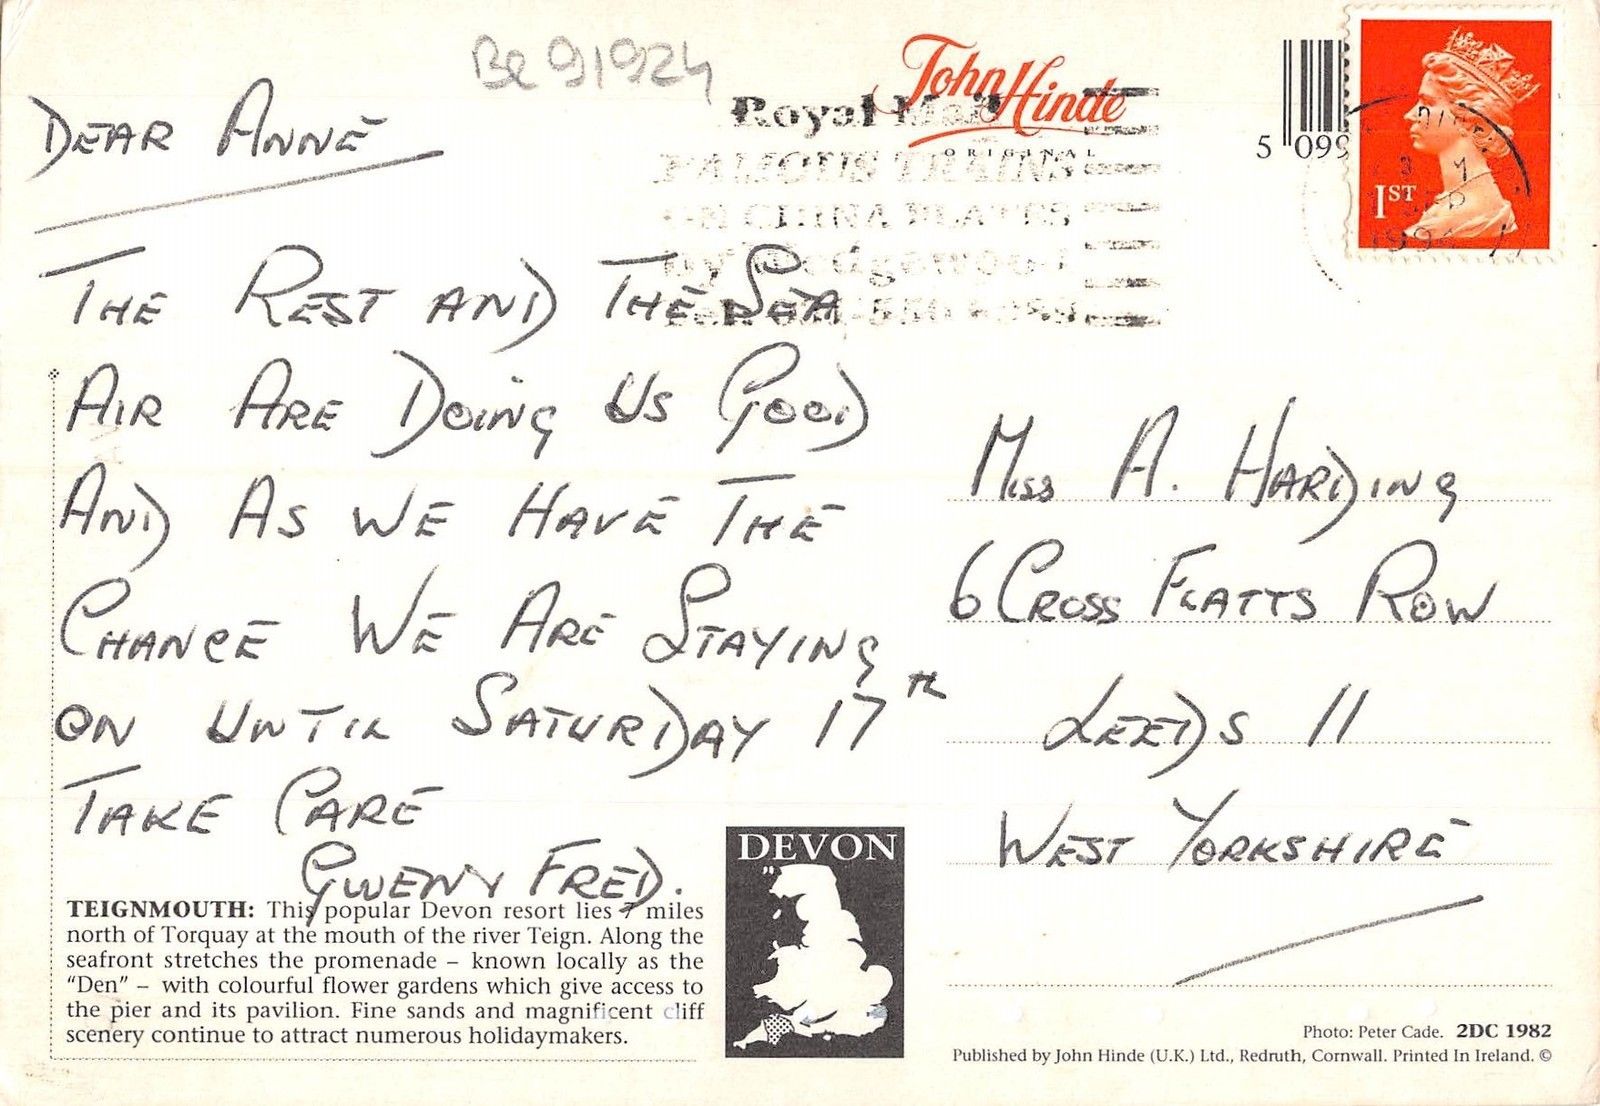 Be 91924
John Hinde
ORIGINAL
Royal Mail
FAMOUS TRAINS
ON CHINA PLATES
by Wedgewood
5 099
1ST
DEAR ANNE
THE REST AND THE SEA
AIR ARE DOING US GOOD
AND AS WE HAVE THE
CHANCE WE ARE STAYING
ON UNTIL SATURDAY 17TH
TAKE CARE
GWENN FRED.
MISS A. HARDING
6 CROSS FLATTS ROW
LEEDS 11
WEST YORKSHIRE
TEIGNMOUTH: This popular Devon resort lies 7 miles
north of Torquay at the mouth of the river Teign. Along the
seafront stretches the promenade – known locally as the
“Den” – with colourful flower gardens which give access to
the pier and its pavilion. Fine sands and magnificent cliff
scenery continue to attract numerous holidaymakers.
DEVON
Photo: Peter Cade. 2DC 1982
Published by John Hinde (U.K.) Ltd., Redruth, Cornwall. Printed In Ireland. ©